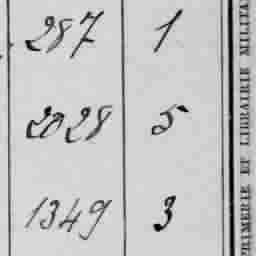 287 1
2028 5
1349 3
PRIMERIE ET LIBRAIRIE MILITA